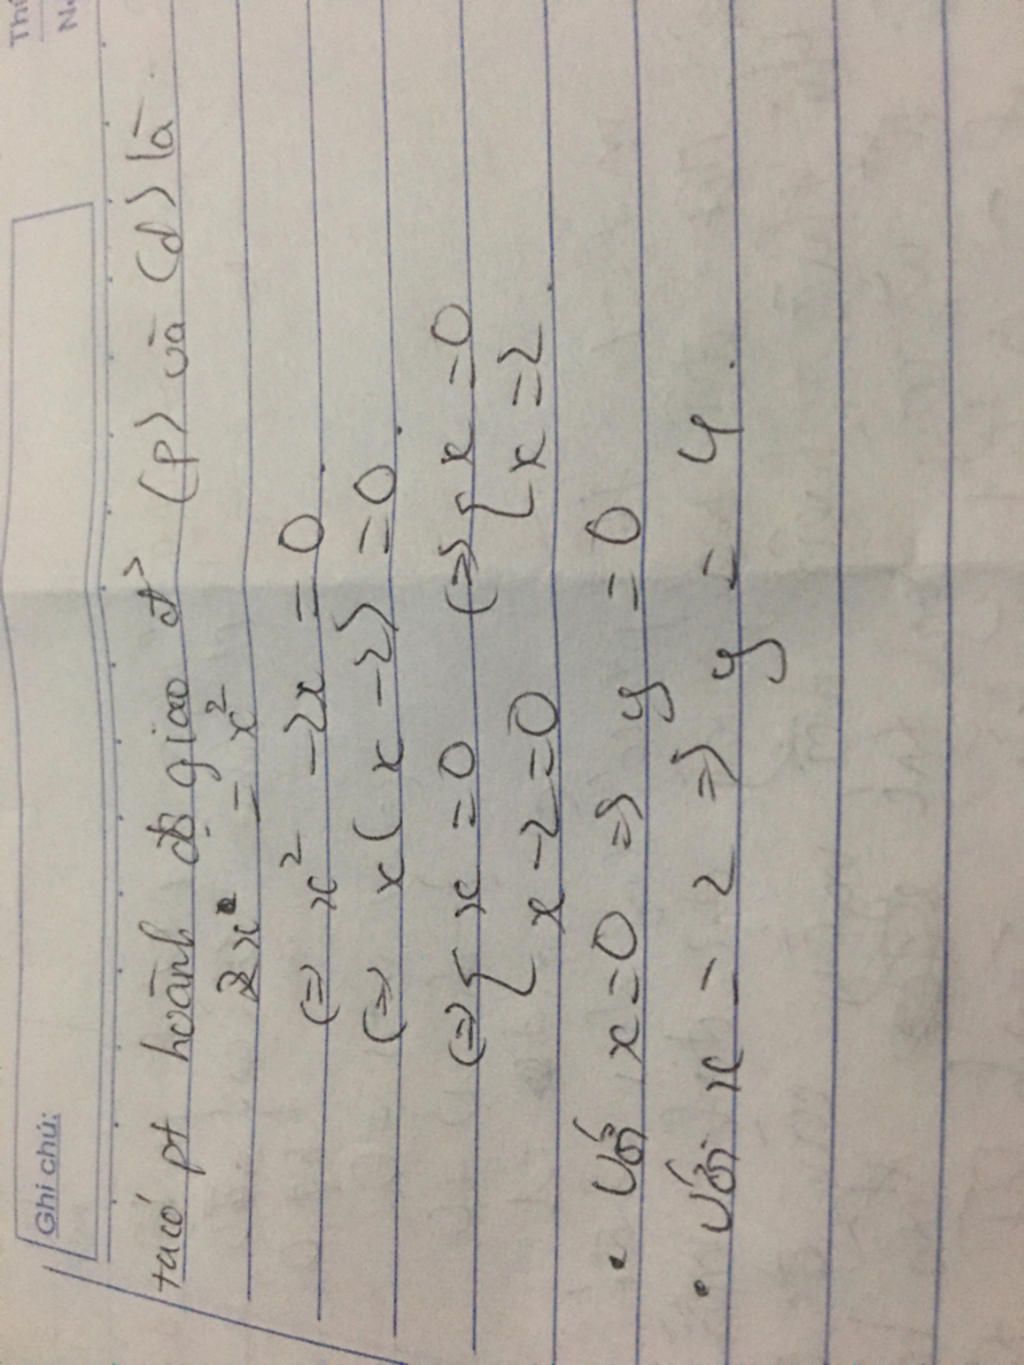 Thứ
Ng
Ghi chú:
ta có pt hoành độ giao đ' (P) và (d) là.
2x = x²
(=) x² - 2x = 0
(=) x(x - 2) = 0
(=) { x = 0 (=) { x = 0
x - 2 = 0 x = 2
• Với x = 0 => y = 0
• Với x = 2 => y = 4.